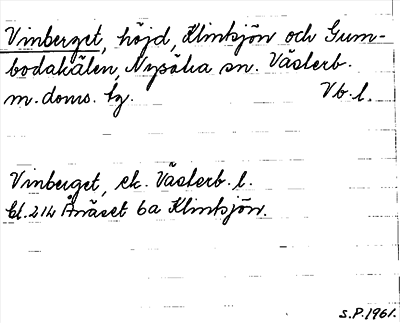 Vinberget, höjd, Klintsjön och Gum-
bodakälen, Nysätra sn. Västerb.
m. doms. tg. Vb. l.
Vinberget, ek. Västerb. l.
bl. 214 Ånäset 6a Klintsjön.
S.P. 1961.